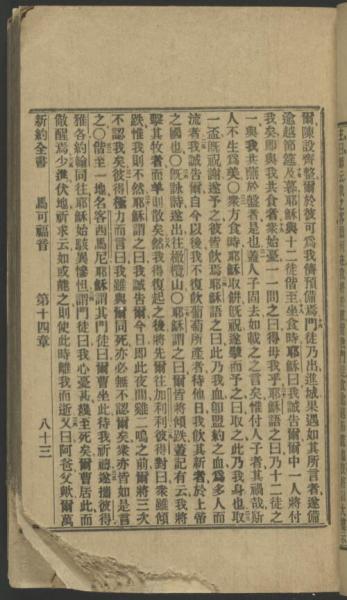 爾陳設齊整爾於彼可爲我儕預備焉門徒乃出進城果遇如其所言者遂備
逾越節筵及暮耶穌與十二徒偕至坐食時耶穌曰我誠告爾爾中一人將付
我矣即與我共食者衆始憂一一問之曰得毋我乎耶穌語之曰乃十二徒之
一與我共蘸於盤者是也蓋人子固去如載之之言矣惟付人子者其禍哉斯
人不生爲美〇衆方食時耶穌取餅既祝遂擘而予之曰取之此乃我身也取
一盃既祝謝遂予之彼皆飲焉耶穌語之曰此乃我血即盟約之血爲多人而
流者我誠告爾自今以後我不復飲葡萄所產者待他日我飲其新者於上帝
之國也〇既詠詩遂出往橄欖山〇耶穌謂之曰爾皆將傾跌蓋記有云我將
擊其牧者而羊則散矣然我得復起之後將先爾往加利利彼得對曰衆雖傾
跌惟我則不然耶穌謂之曰我誠告爾今日即此夜間雞二鳴之前爾將三次
不認我矣彼得極力而言曰我雖與爾同死亦必無不認爾矣衆亦皆如是言
之〇偕至一地名客西馬尼耶穌謂其門徒曰爾曹坐此待我祈禱遂攜彼得
雅各約翰同往耶穌始駭異慘怛謂門徒曰我心憂甚幾至死矣爾曹居此而
儆醒焉少進伏地祈求云如或能之則使此時離我而逝又曰阿爸父歟爾萬
新約全書 馬可福音 第十四章 八十三